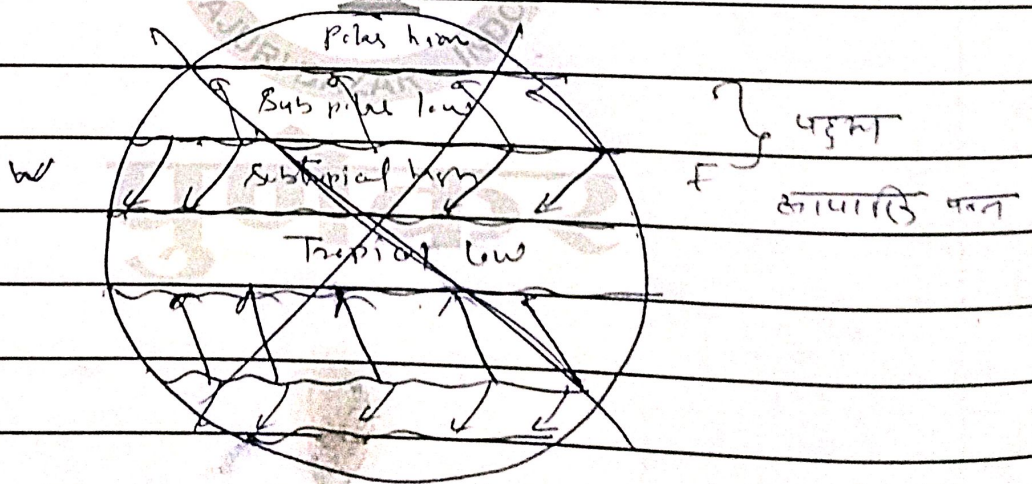 Polar high
Sub polar low
Subtropical high
Tropical low
W
E
पछुआ
व्यापारिक पवन